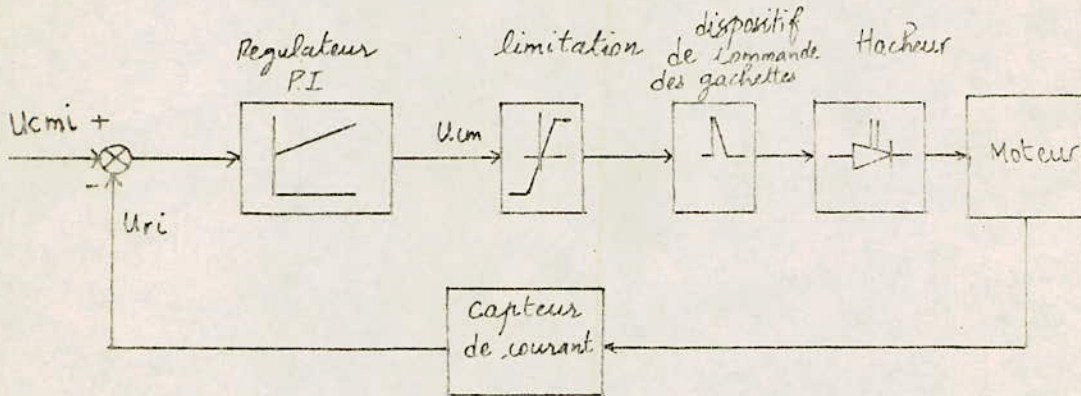 Regulateur
P.I
limitation
dispositif
de commande
des gachettes
Hacheur
Ucmi +
-
Uri
U.cm
Moteur
Capteur
de courant